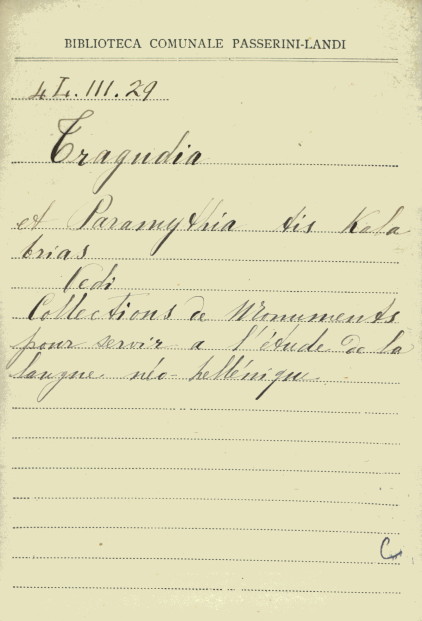 BIBLIOTECA COMUNALE PASSERINI-LANDI
4 L. III. 29
Tragudia
et Paramythia tis Kala
brias
Vedi
Collections de Monuments
pour servir a l'étude de la
langue néo-hellénique
C